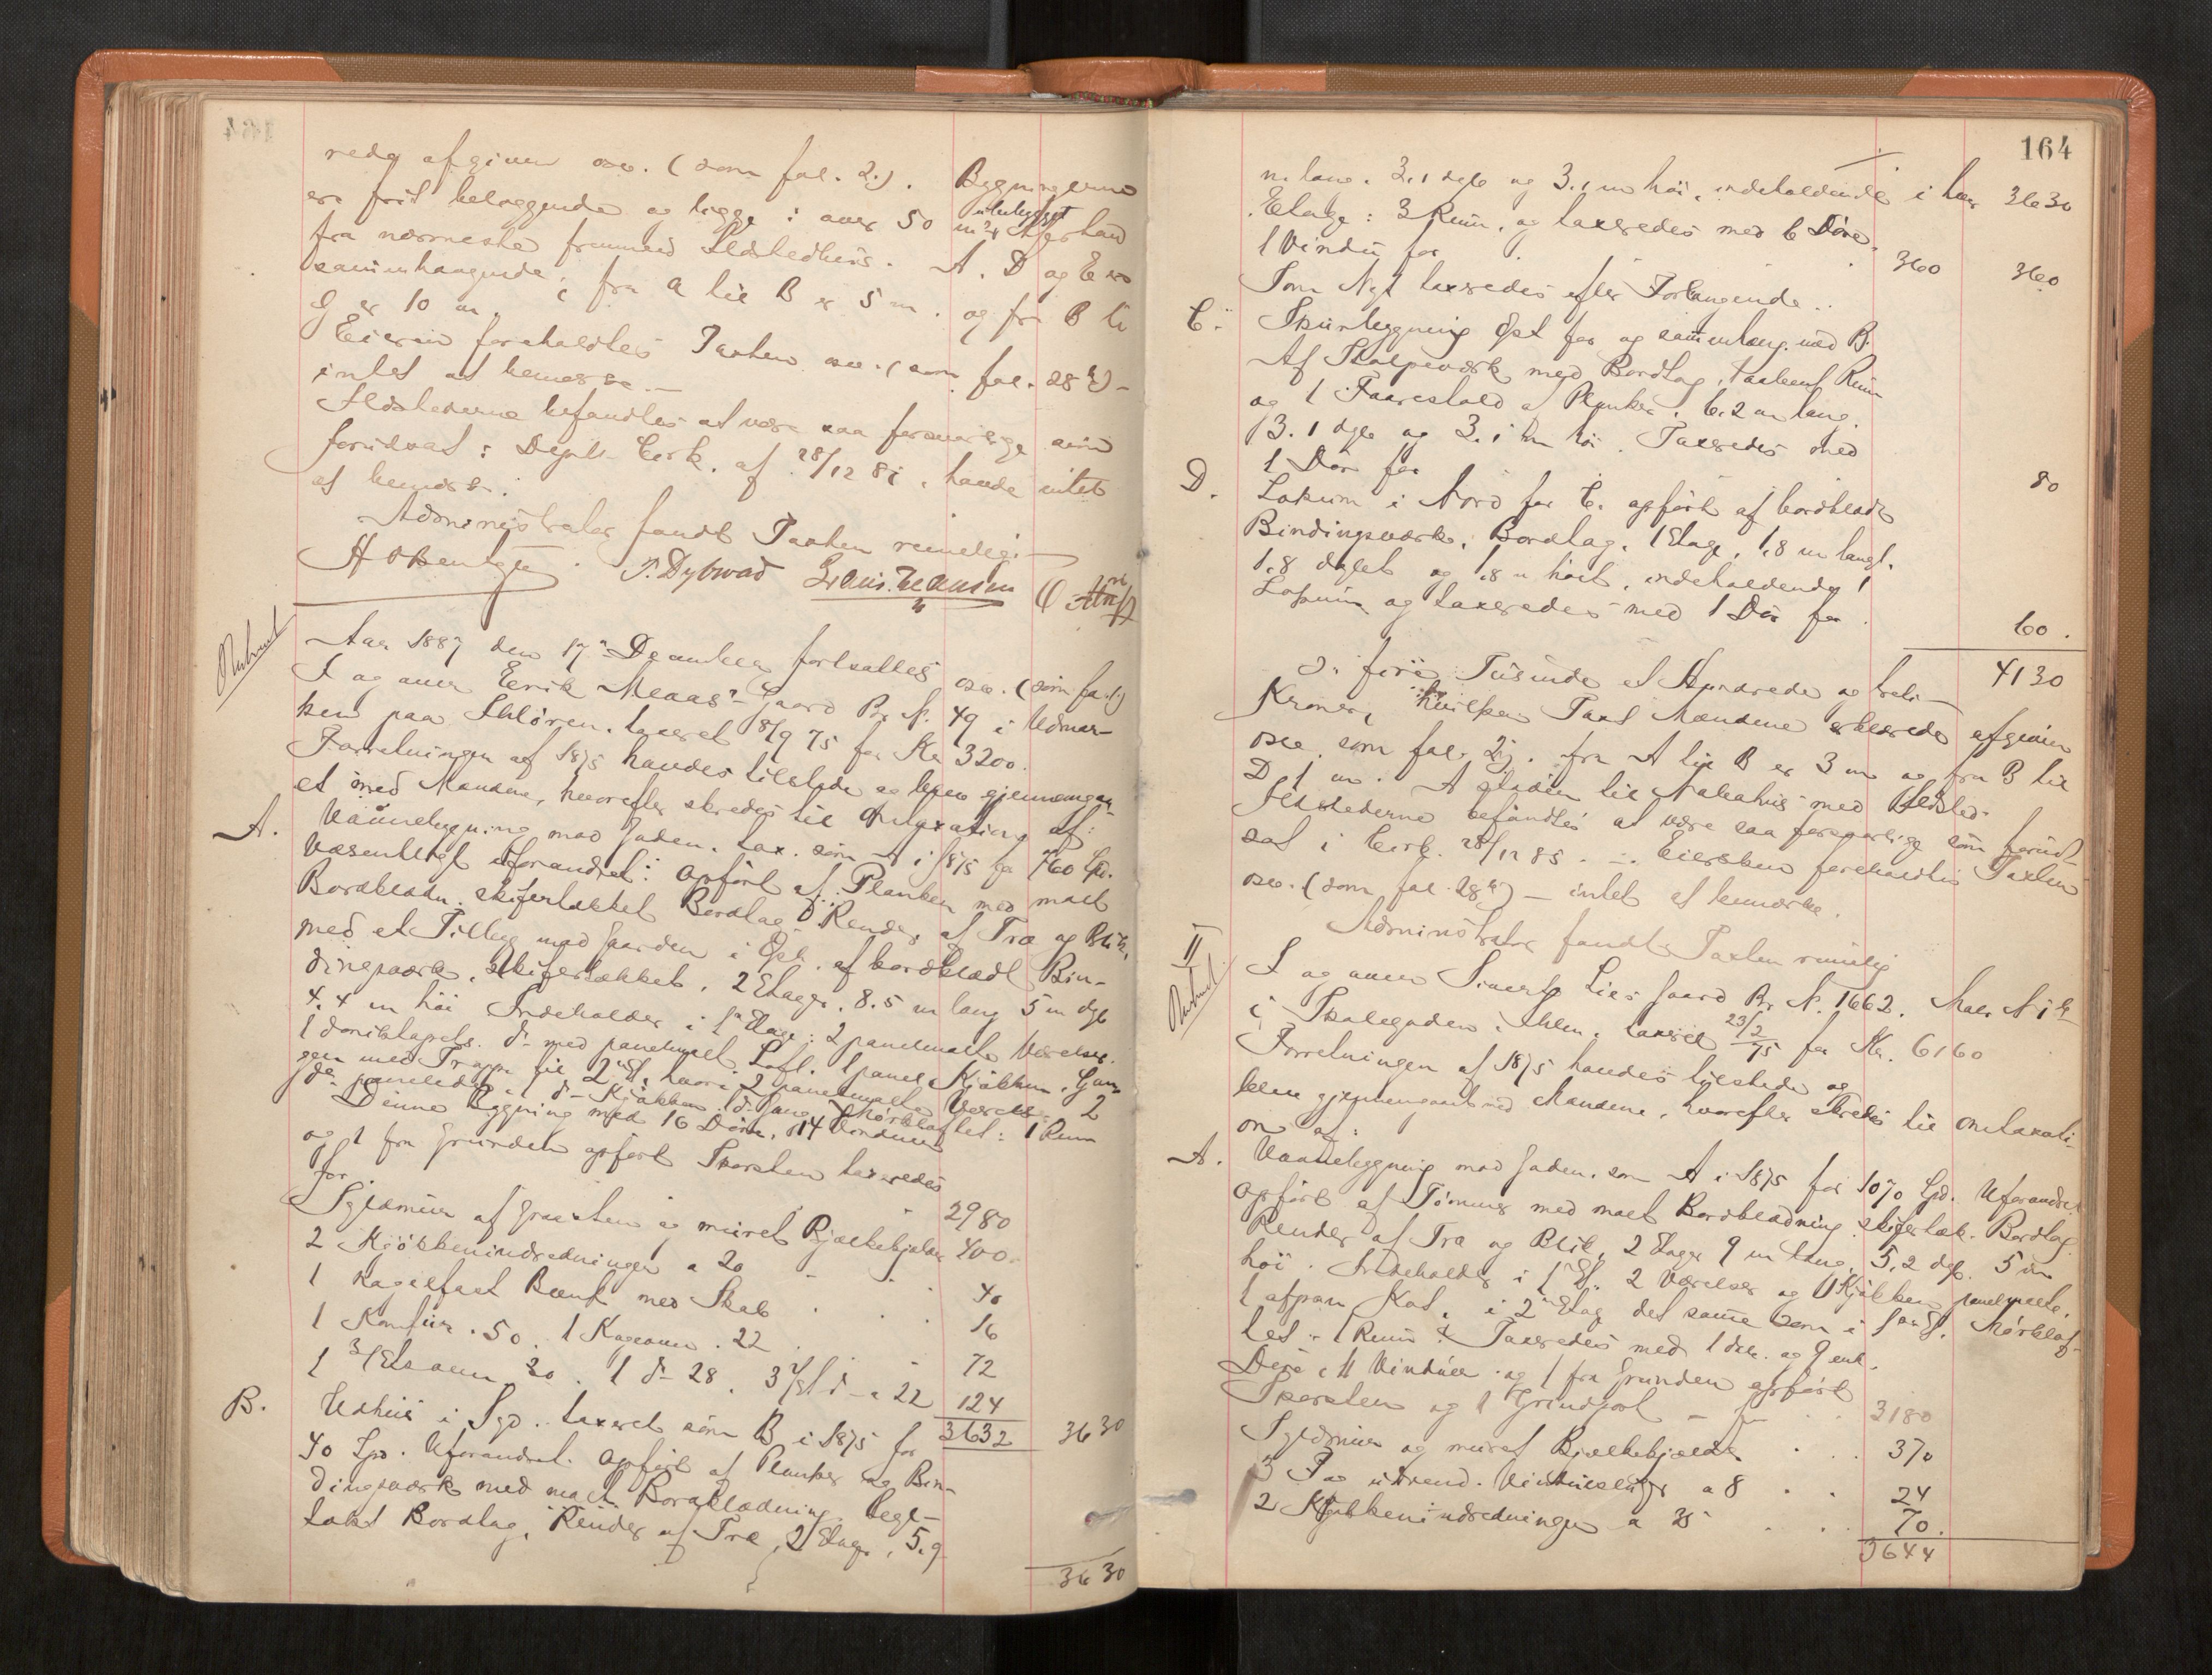 redg afgiven osv. (som fol. 2.). Bygningerne
er frit beliggende og ligge i over 50 m's Afstand
ubebygget
fra nærmeste fremmed Ildstedhus. A. D og E ere
sammenhængende, fra A til B er 5 m. og fra B til
10 m.
Eieren foreholdtes Taxten osv. (som fol. 28) -
intet at bemærke. -
Ildstederne befandtes at være saa forsvarlige som
forudsat i Dept. Cirk. af 28/12 85, havde intet
at bemærke.
Administrator fandt Taxten rimelig. -
P. Dybwad Hansen
Aar 1887 den 17de December fortsattes osv. (som fol. 1)
I og over Eerik Gaard Br. N. 49 i Udmar-
ken paa Ihlören, taxeret 8/9 75 for Kr 3200.
Forretningen af 1875 havdes tilstede og blev gjennemgaa-
et med Mændene, hvorefter skredes til Omtaxation af:
A. Vaanebygning mod Gaden, tax. som A i 1875 for 760 Spd.
Væsentligt uforandret: Opført af Planker med malt
Bordklædn. skifertækket Bordtag Render af Træ og Blik,
med et Tilbyg mod Gaarden i Øst. af bordklædt Bin-
dingsværk, skifertækket, 2 Etager, 8.5 m lang 5 m dyb
4.4 m høi Indeholder i 1ste Etage: 2 panelmalte Værelser.
1 do med panelmalt Loft. 1 panel. Kjøkken, Gan-
gen med Trappe til 2den Et., hvori 2 panelmalte Værelser. 2
do panelede. 1 do Kjøkken. 1 do Gang. Mørkloftet: 1 Rum
Denne Bygning med 16 Døre, 14 Vinduer
og 1 fra Grunden opført Skorsten taxeredes
for 2980
Syldmur af Graasten og muret Kjælder 400
2 Kjøkkenindredninger a 20 40
1 Bænk med Skab 16
1 Komfur. 50. 1 Kageovn. 22 72
1 3/Etsovn 30. 1 do 28. 3 do a 22 124
3632 3630
B. Udhus i Syd. taxeret som B i 1875 for
40 Spd. Uforandret. Opført af Planker og Bin-
dingsværk med malt Bordklædning. Tegl-
takt Bordtag, Render af Træ, 2 Etager, 5.9
3630
164
m. lang. 3.1 dyb og 3.1 m høi, indeholdende i hver 3630
Etage: 3 Rum, og taxeredes med 6 Døre,
1 Vindu for 360 360
Som Nyt taxeredes efter Forlangende.
C. Skurbygning Øst for og sammenhæng. med B.
Af Stolpeværk med Bordtag, Rum
og 1 Faarestald af Planker. 6.2 m lang.
3.1 dyb og 3.1 m høi. Taxeredes med
1 Dør for 80
D. Lokum i Nord for C. opført af bordklædt
Bindingsværk, Bordtag, 1 Etage, 1.8 m langt,
1.8 dybt og 1.8 m høit, indeholdende 1
Lokum og taxeredes med 1 Dør for 60.
4130
Er fire Tusinde et Hundrede og treti -
Kroner, hvilken Taxt Mændene erklærede afgiven
osv. som fol. 2. fra A til B er 3 m og fra B til
D 1 m. A støder til Nabohus med Ildsted.
Ildstederne befandtes at være saa forsvarlige som forud-
sat i Cirk. 28/12 85. -. Eiersken foreholdtes Taxten
osv. (som fol. 28) - intet at bemærke.
Administrator fandt Taxten rimelig
II
I og over Sivert Lies Gaard Br. N. 1662.
i Skolegaden, Ihlen, taxeret 23/2 75 for Kr. 6160
Forretningen af 1875 havdes tilstede og
blev gjennemgaaet med Mændene, hvorefter skredes til Omtaxati-
on af:
A. Vaanebygning mod Gaden, som A i 1875 for 1070 Spd. Uforandret
Opført af Tømmer med malt Bordklædning skifertæk. Bordtag
Render af Træ og Blik, 2 Etager 9 m lang, 5,2 dyb. 5 m
høi. Indeholder i 1ste Et. 2 Værelser og 1 Kjøkken panelmalte,
1 i 2den Etag det samme som i 1ste Et. Mørklof-
tet: 1 Rum. Taxeredes med 1 dob. og 9 enk.
Døre, 11 Vinduer og 1 fra Grunden opført
Skorsten og 1 Grindport - for 3180
Syldmur og muret Kjælder 370
3 Fag udvend. Vinduer a 8 24
2 Kjøkkenindredninger a 35 70.
3644